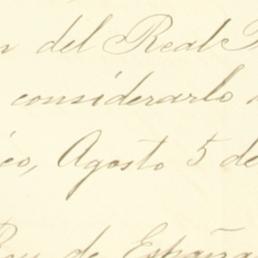 del Real
considerarlo
Agosto 5 de
Rey de España